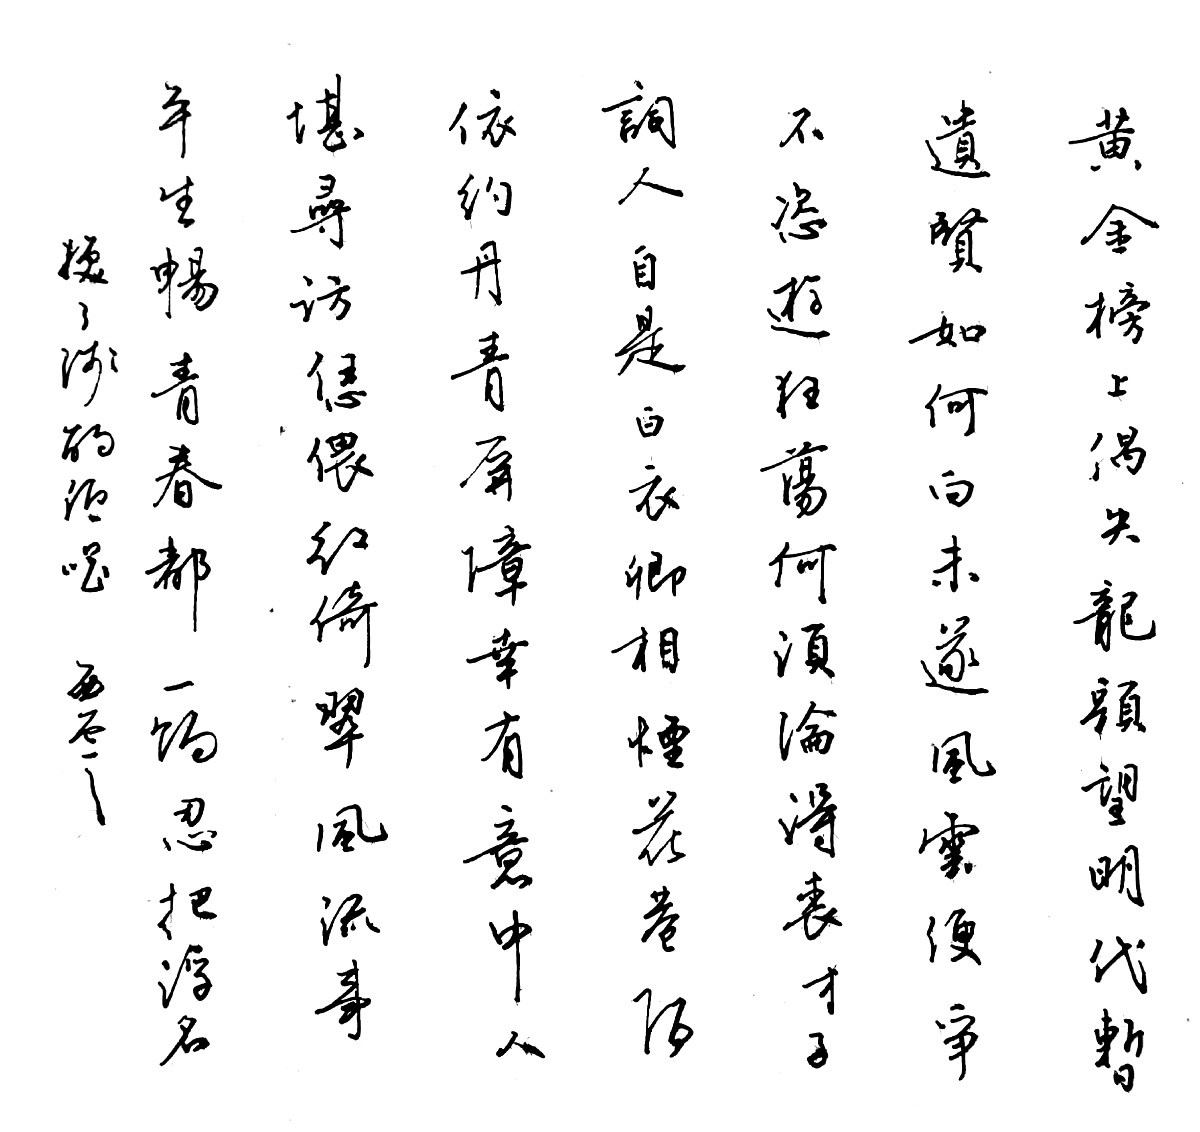 黄金榜上偶失龍頭望明代暫
遺賢如何向未遂風雲便爭
不恣遊狂蕩何須論得喪才子
詞人自是白衣卿相煙花巷陌
依約丹青屏障幸有意中人
堪尋訪恁偎紅倚翠風流事
平生暢青春都一餉忍把浮名
換了浅酌低唱